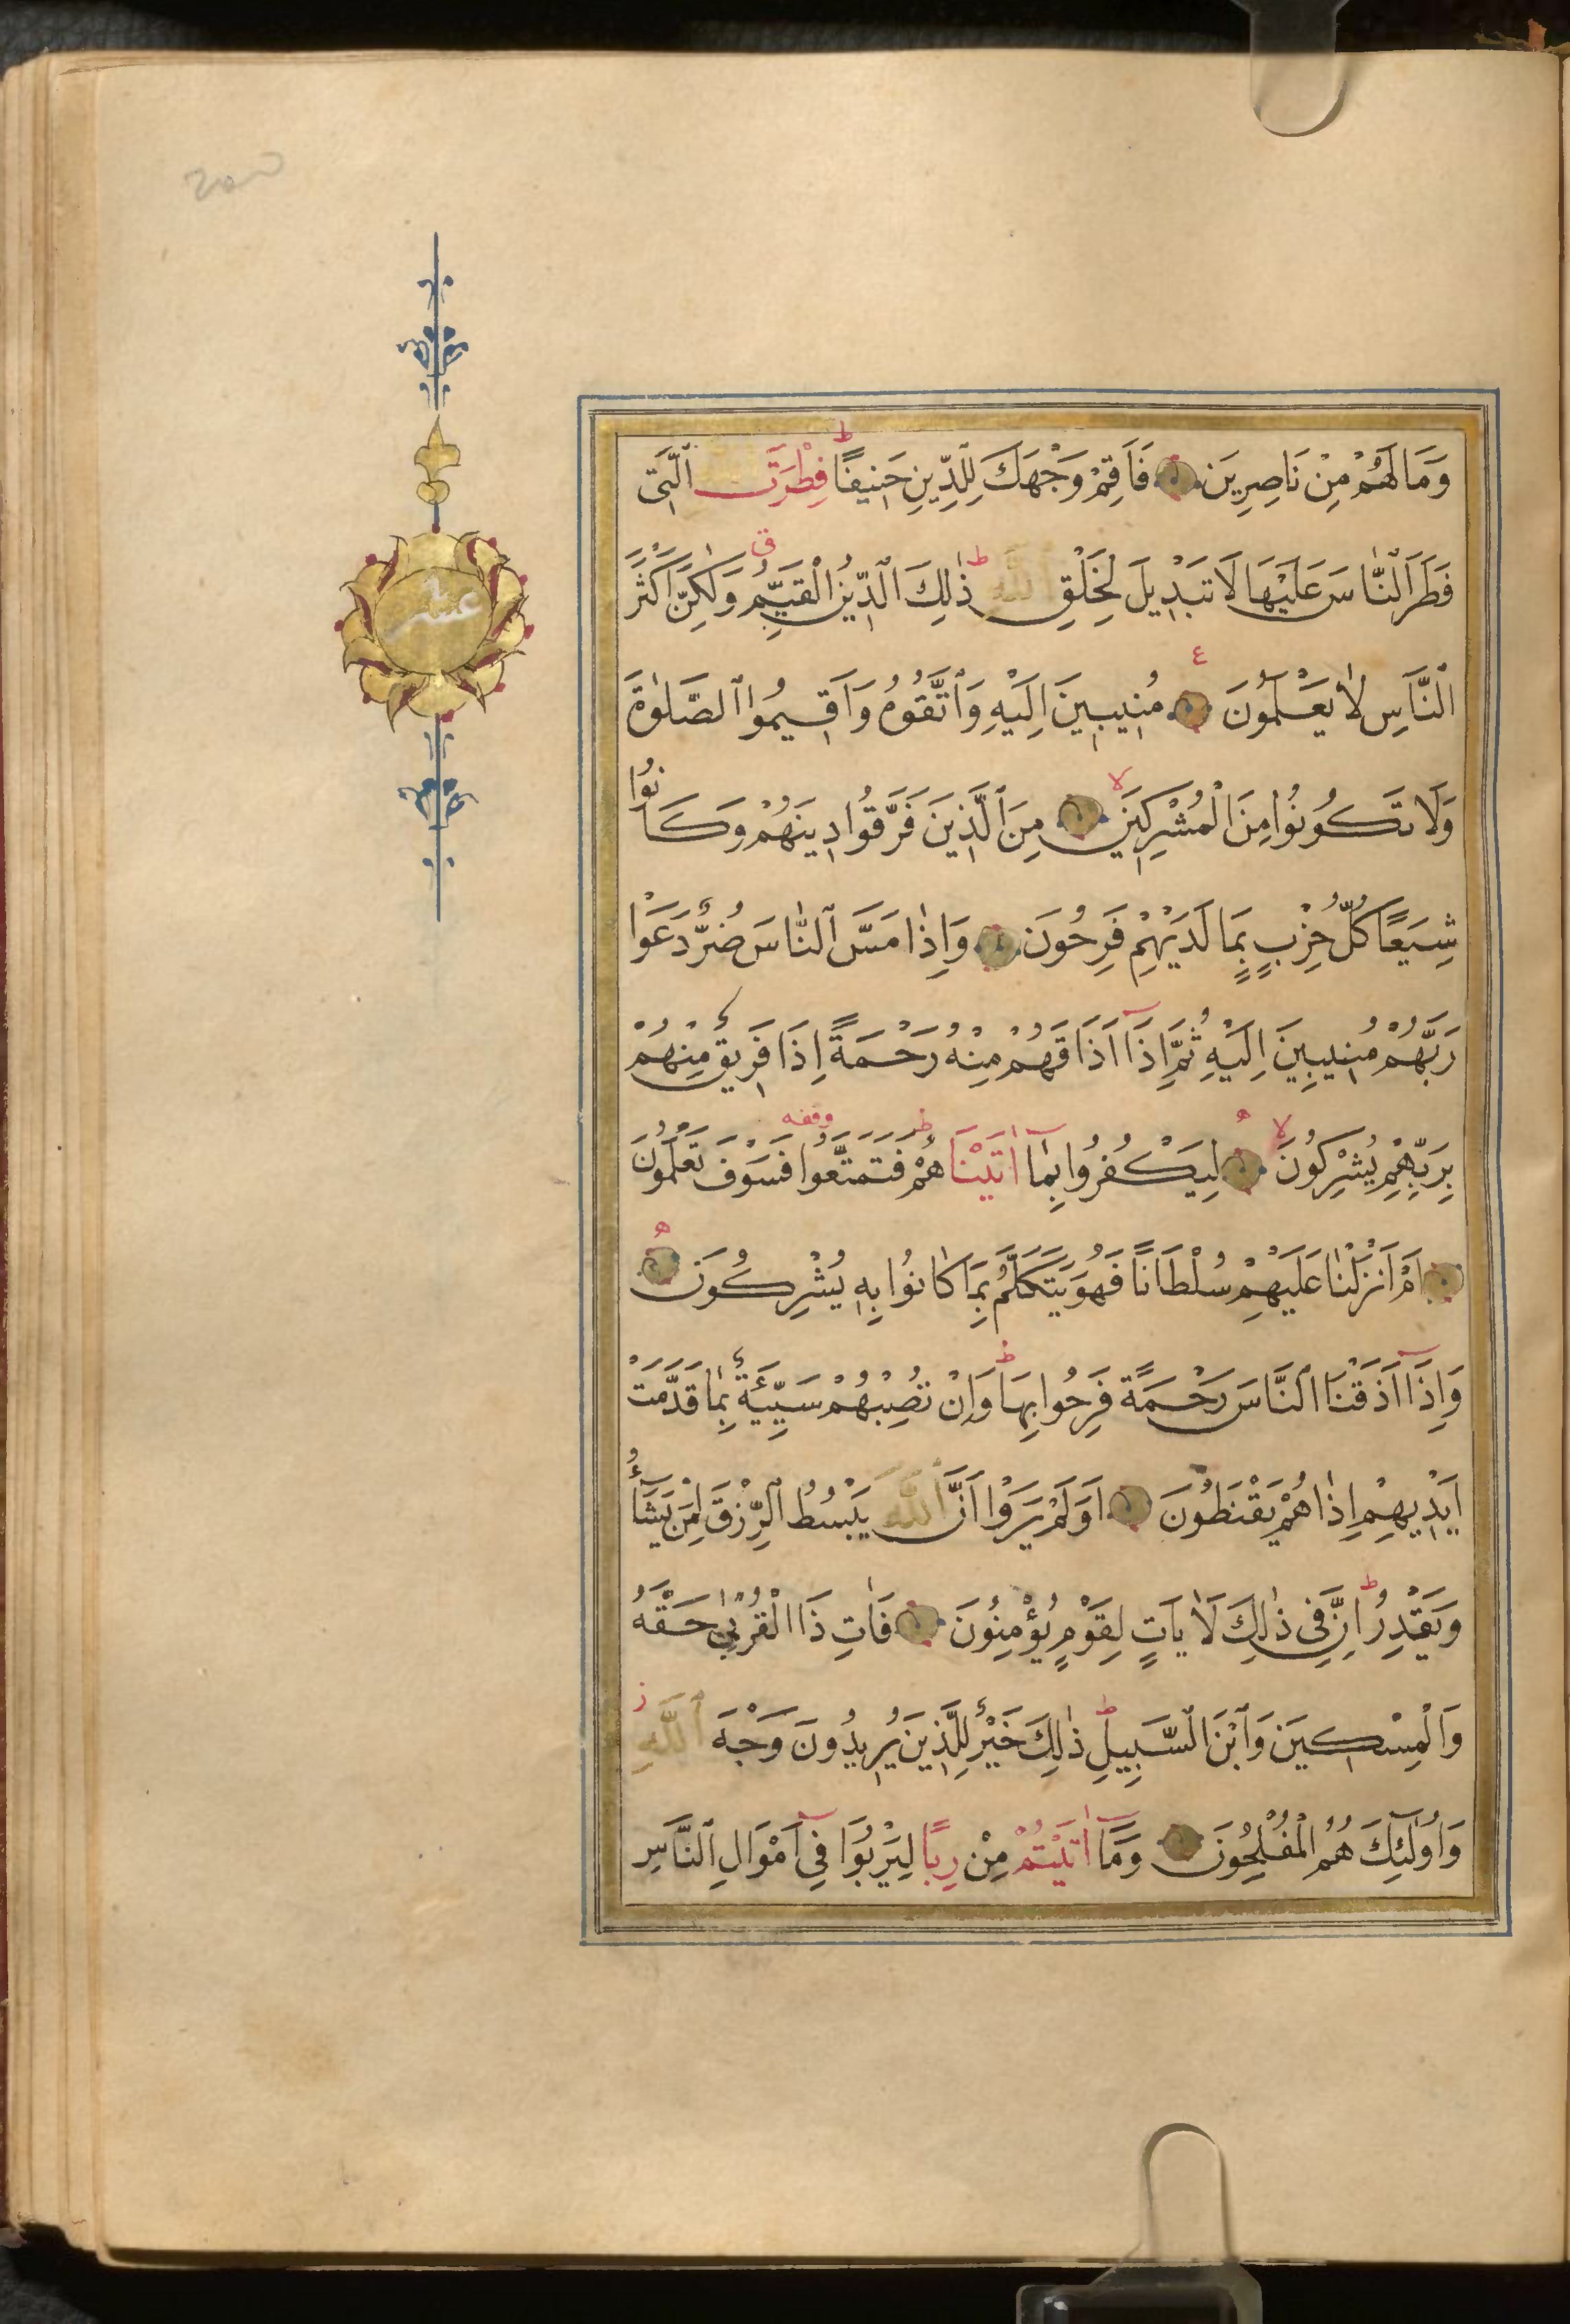 وَمَا لَهُمْ مِنْ نَاصِرِينَ فَاَقِمْ وَجْهَكَ لِلدِّينِ حَنِيفًا ط فِطْرَتَ اللّٰهِ ٱلَّتِى
فَطَرَ ٱلنَّاسَ عَلَيْهَا لَا تَبْدِيلَ لِخَلْقِ اللّٰهِ ط ذٰلِكَ ٱلدِّينُ الْقَيِّمُ ق وَلٰكِنَّ اَكْثَرَ
ٱلنَّاسِ لَا يَعْلَمُونَ ع مُنِيبِينَ اِلَيْهِ وَٱتَّقُوهُ وَاَقِيمُوا ٱلصَّلٰوةَ
وَلَا تَكُونُوا مِنَ الْمُشْرِكِينَ لا مِنَ ٱلَّذِينَ فَرَّقُوا دِينَهُمْ وَكَانُوا
شِيَعًا كُلُّ حِزْبٍ بِمَا لَدَيْهِمْ فَرِحُونَ وَاِذَا مَسَّ ٱلنَّاسَ ضُرٌّ دَعَوْا
رَبَّهُمْ مُنِيبِينَ اِلَيْهِ ثُمَّ اِذَٓا اَذَاقَهُمْ مِنْهُ رَحْمَةً اِذَا فَرِيقٌ مِنْهُمْ
بِرَبِّهِمْ يُشْرِكُونَ لا ه لِيَكْفُرُوا بِمَٓا اٰتَيْنَاهُمْ ط فَتَمَتَّعُوا وقفه فَسَوْفَ تَعْلَمُونَ
اَمْ اَنْزَلْنَا عَلَيْهِمْ سُلْطَانًا فَهُوَ يَتَكَلَّمُ بِمَا كَانُوا بِهِ يُشْرِكُونَ ه
وَاِذَٓا اَذَقْنَا ٱلنَّاسَ رَحْمَةً فَرِحُوا بِهَا ط وَاِنْ تُصِبْهُمْ سَيِّئَةٌ بِمَا قَدَّمَتْ
اَيْدِيهِمْ اِذَا هُمْ يَقْنَطُونَ اَوَلَمْ يَرَوْا اَنَّ ٱللّٰهَ يَبْسُطُ ٱلرِّزْقَ لِمَنْ يَشَٓاءُ
وَيَقْدِرُ ط اِنَّ فِى ذٰلِكَ لَاٰيَاتٍ لِقَوْمٍ يُؤْمِنُونَ فَاٰتِ ذَا الْقُرْبٰى حَقَّهُ
وَالْمِسْكِينَ وَٱبْنَ ٱلسَّبِيلِ ط ذٰلِكَ خَيْرٌ لِلَّذِينَ يُرِيدُونَ وَجْهَ ٱللّٰهِ ز
وَاُولٰٓئِكَ هُمُ الْمُفْلِحُونَ وَمَٓا اٰتَيْتُمْ مِنْ رِبًا لِيَرْبُوَا فِٓى اَمْوَالِ ٱلنَّاسِ
عشر